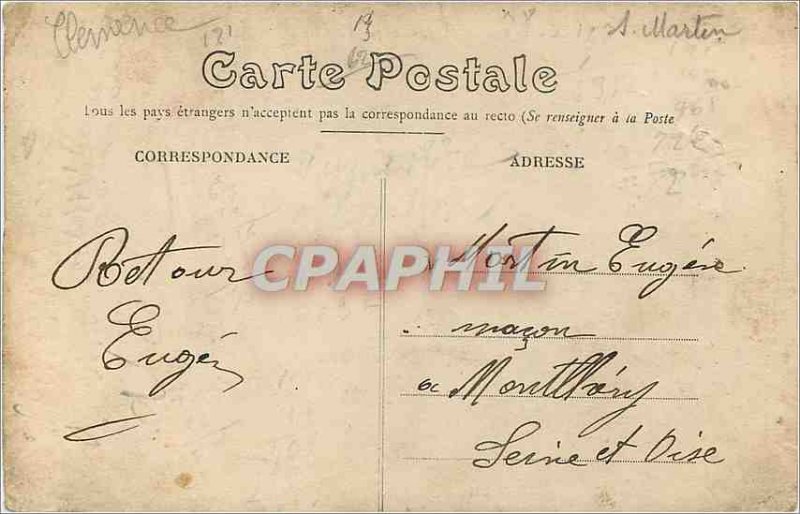 Clemence
121
13
A. Martin
Carte Postale
Tous les pays étrangers n'acceptent pas la correspondance au recto (Se renseigner à la Poste
CORRESPONDANCE
ADRESSE
Retour
Eugène
Martin Eugène
maçon
a Montlhéry
Seine et Oise
CPAPHIL